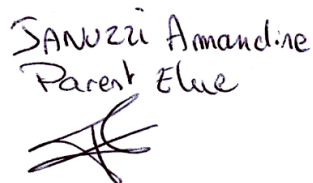 JANUZZI Amandine
Parent Elue